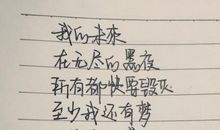 我的未来
在无尽的黑夜
所有都快要毁灭
至少我还有梦